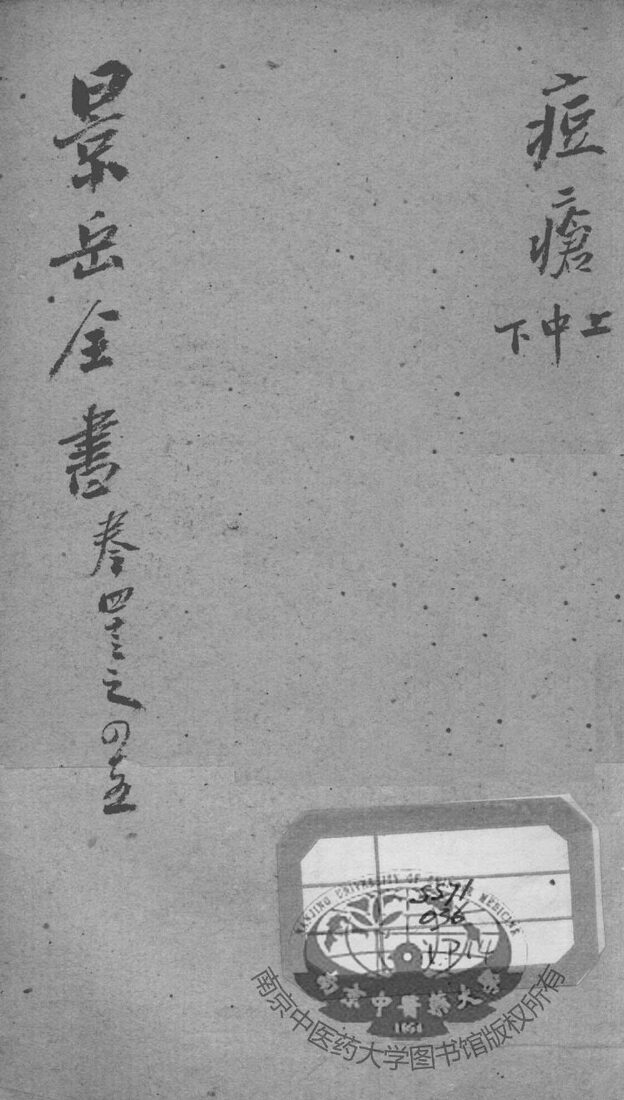 痘瘡
上中下
景岳全書
卷四十三之四十五
5571
036
V.P14
NANJING UNIVERSITY OF CHINESE MEDICINE
南京中醫藥大學
1954
南京中医药大学图书馆版权所有